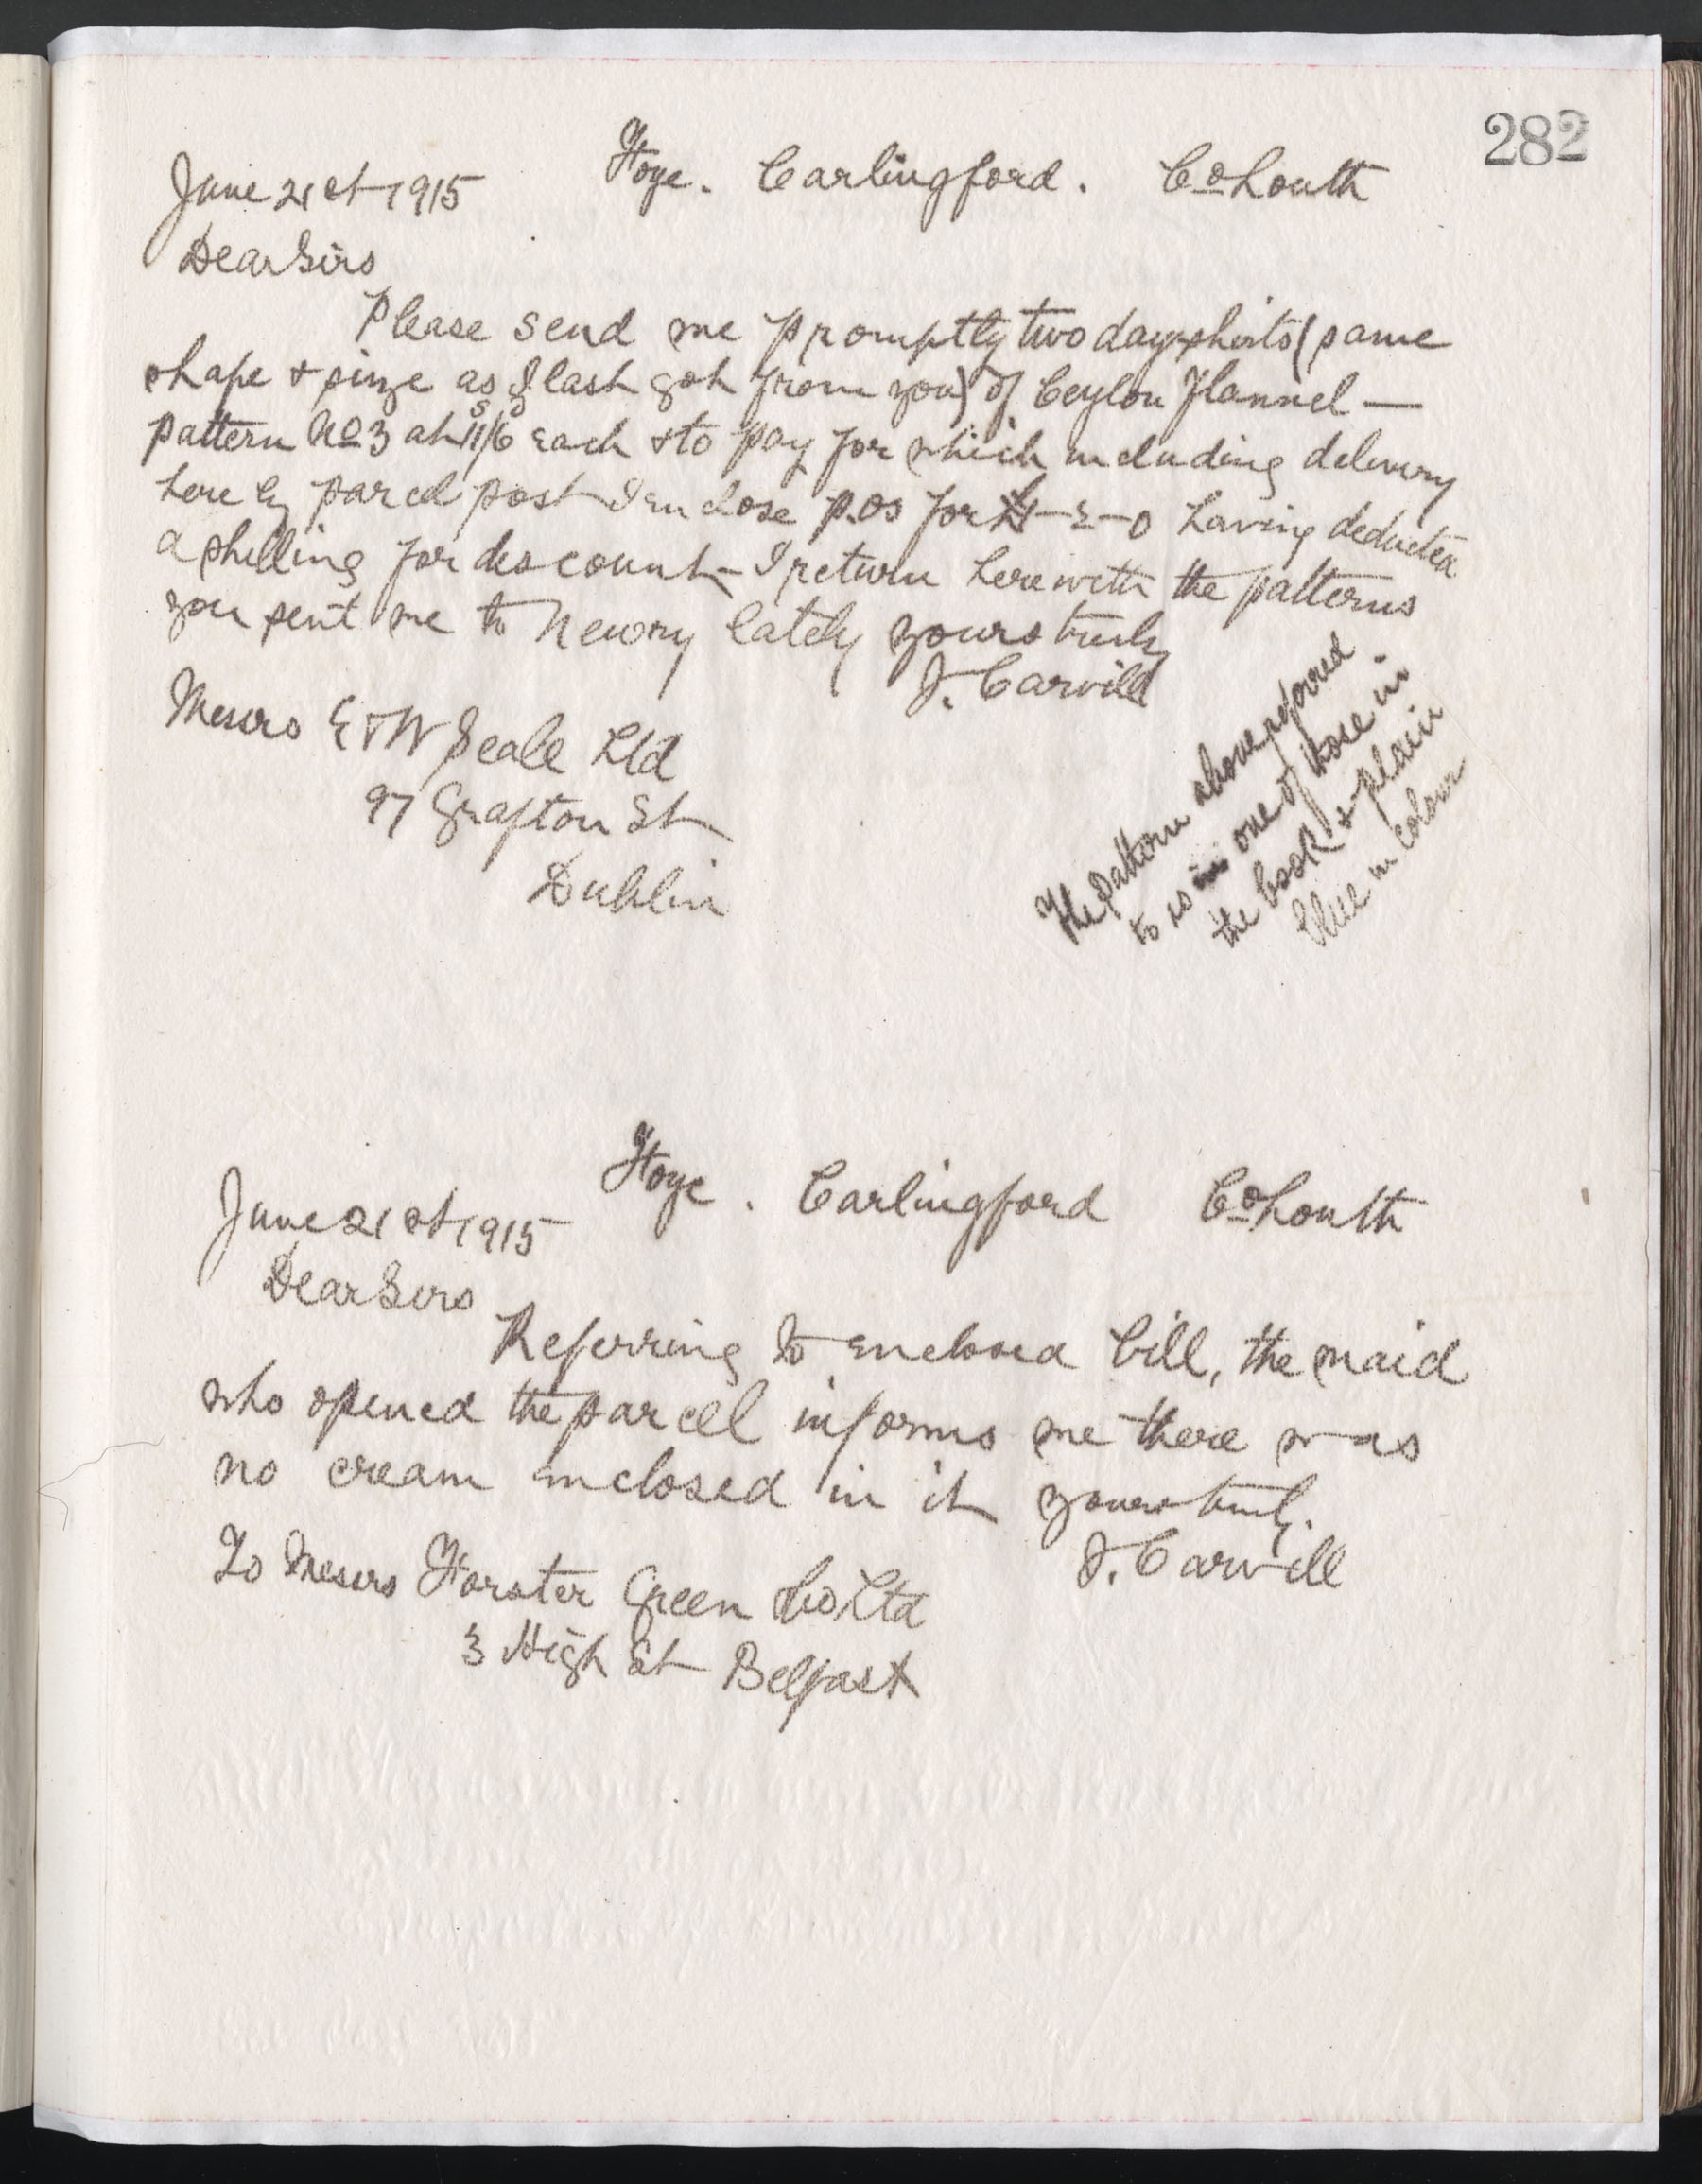 282
Foye. Carlingford. Co Louth
June 21st 1915
Dear Sirs
Please send me promptly two day shirts (same
shape & size as I last got from you) of Ceylon Flannel —
pattern No 3 at 11s/6d each & to pay for which including delivery
here by parcel post I enclose p.os for £1-2-0 having deducted
a shilling for discount – I return herewith the patterns
you sent me to Newry lately yours truly
J. Carvill
Messrs E & W Seale Ltd
97 Grafton St
Dublin
The pattern above referred
to is one of those in
the book & plain
blue in colour
Foye. Carlingford Co Louth
June 21st 1915
Dear Sirs
Referring to enclosed bill, the maid
who opened the parcel informs me there was
no cream enclosed in it yours truly.
J. Carvill
To Messrs Forster Green Co Ltd
3 High St Belfast